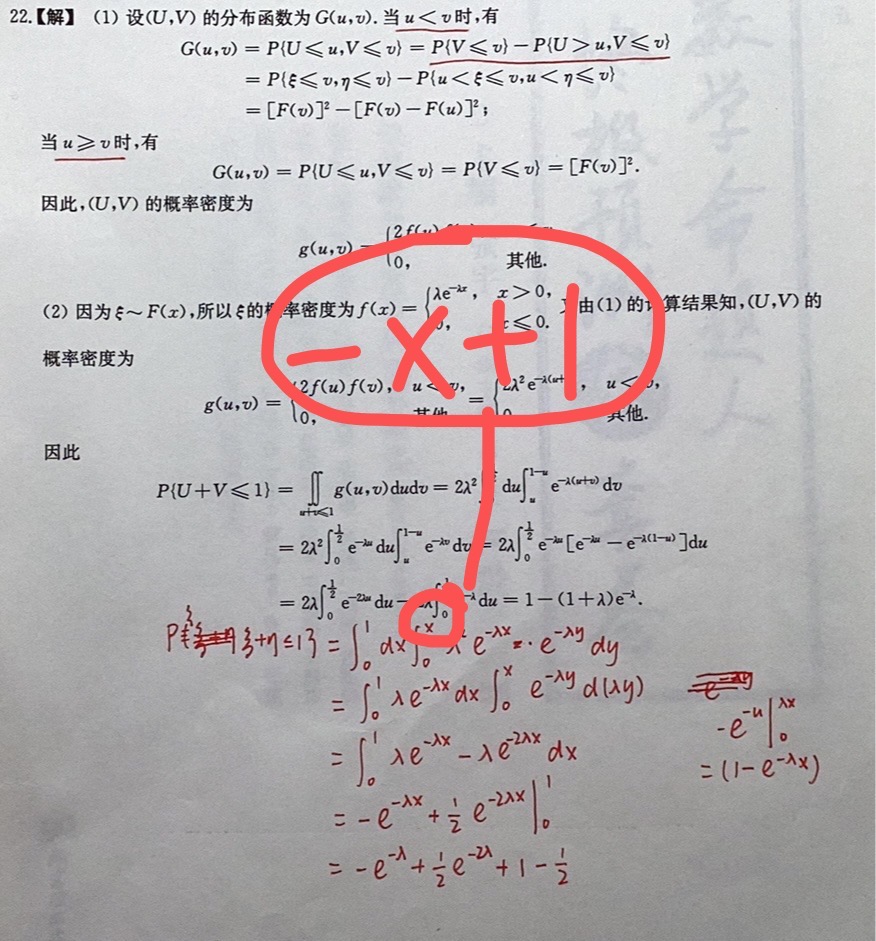 22.【解】 (1) 设(U,V) 的分布函数为 G(u,v). 当 u < v 时,有
G(u,v) = P{U ⩽ u,V ⩽ v} = P{V ⩽ v} − P{U > u,V ⩽ v}
= P{ξ ⩽ v,η ⩽ v} − P{u < ξ ⩽ v,u < η ⩽ v}
= [F(v)]² − [F(v) − F(u)]²;
当 u ⩾ v 时,有
G(u,v) = P{U ⩽ u,V ⩽ v} = P{V ⩽ v} = [F(v)]².
因此,(U,V) 的概率密度为
g(u,v) = {2f(u)
0, 其他.
(2) 因为 ξ ~ F(x),所以 ξ 的概率密度为 f(x) = {λe^{−λx}, x > 0,
0, x ⩽ 0. 又由(1) 的计算结果知,(U,V) 的
−x+1
概率密度为
g(u,v) = {2f(u)f(v), u < v, = {2λ²e^{−λ(u+ , u < v,
0, 其他 0 其他.
因此
P{U+V ⩽ 1} = ∬_{u+v⩽1} g(u,v)dudv = 2λ² du∫_u^{1−u} e^{−λ(u+v)} dv
= 2λ²∫_0^{1/2} e^{−λu} du∫_u^{1−u} e^{−λv} dv = 2λ∫_0^{1/2} e^{−λu}[e^{−λu} − e^{−λ(1−u)}]du
= 2λ∫_0^{1/2} e^{−2λu} du − 2λ∫_0 e^{−λ} du = 1 − (1+λ)e^{−λ}.
P{ξ+η≤1} = ∫_0^1 dx ∫_0^x λ² e^{−λx} · e^{−λy} dy
= ∫_0^1 λe^{−λx} dx ∫_0^x e^{−λy} d(λy)
−e^{−u}|_0^{λx}
= ∫_0^1 λe^{−λx} − λe^{−2λx} dx
= (1−e^{−λx})
= −e^{−λx} + ½ e^{−2λx} |_0^1
= −e^{−λ} + ½ e^{−2λ} + 1 − ½